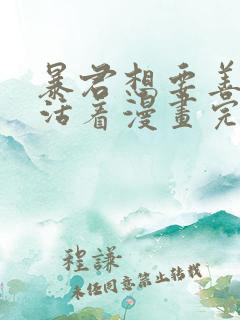 暴君想要善
活着漫畫完
程謙
未任同意禁止转载